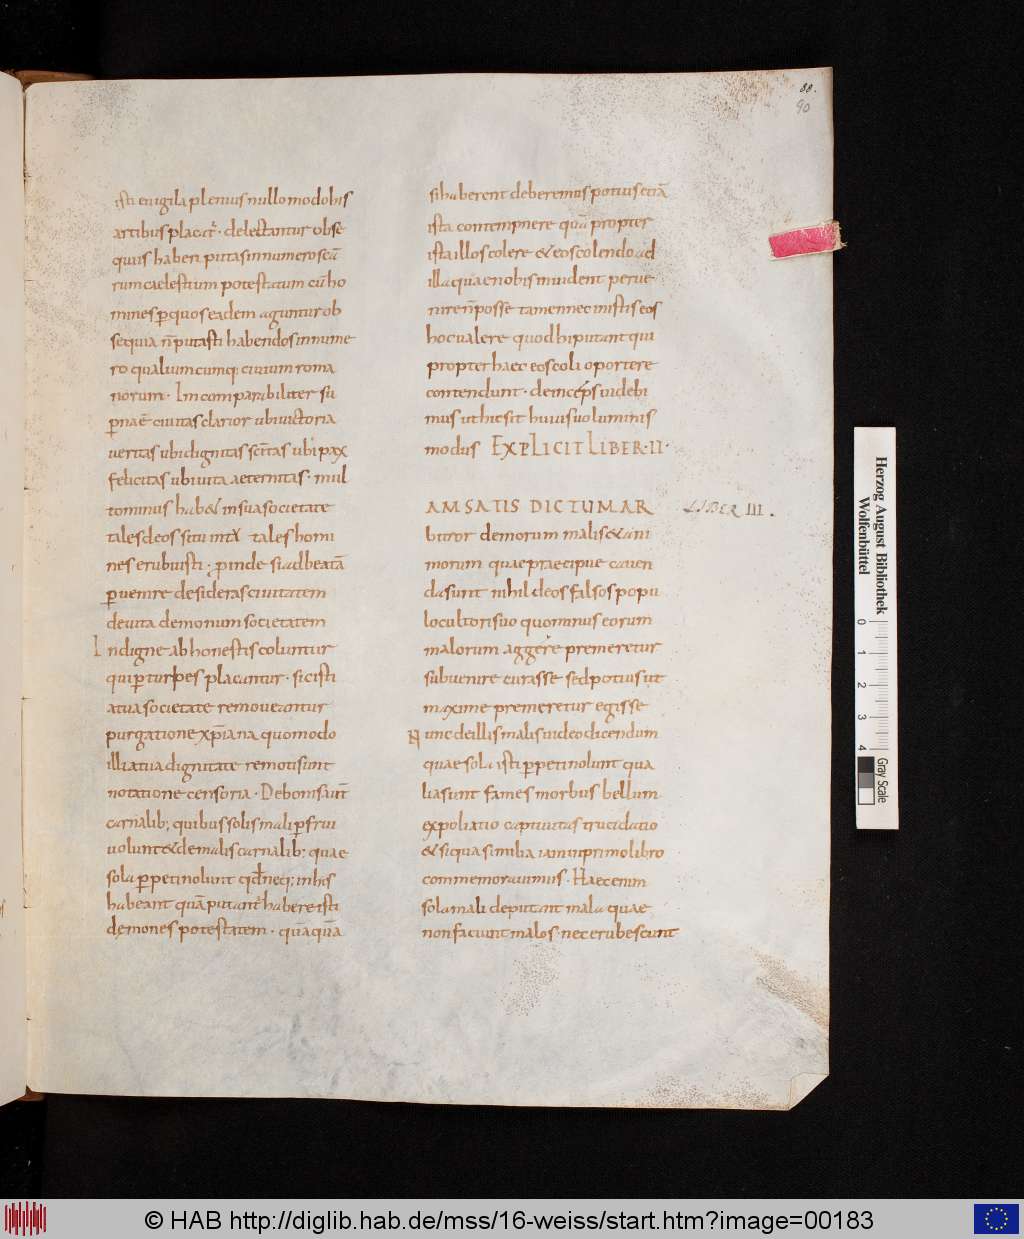 88.
90
isti euigila plenius nullo modo his
artibus placat᷑ · delectantur obse
quiis haberi putas in numero scā
rum caelestium potestatum cū ho
mines ꝑ quos eadem aguntur ob
sequia n̄ putasti habendos in nume
ro qualiumcumq; ciuium roma
norum · Incomparabiliter su
ꝑnaē ciuitas clarior ubi uictoria
ueritas ubi dignitas sc̄itas ubi pax
felicitas ubi uita aeternitas · mul
tominus hab& in sua societate
tales deos si tu int̄
tales homi
nes erubuisti · proinde si ad beatā
ꝑuenire desideras ciuitatem
deuita demonum societatem
Indigne ab honestis coluntur
qui ꝑ turpes placantur · sic isti
a tua societate remoueantur
purgatione xp̄iana quomodo
illi a tua dignitate remoti sunt
notatione censoria · De bonis aut̄
carnalib; quibus solis mali ꝑfrui
uolunt & de malis carnalib; quae
sola ꝑpeti nolunt qđ neq; in his
habeant quā putant᷑ habere isti
demones potestatem · quāquā
si haberent deberemus potius etiā
ista contempnere quā propter
ista illos colere & eos colendo ad
illa quae nobis inuident perue
nire n̄ posse tamen nec in istis eos
hoc ualere quod hi putant qui
propter haec eos coli oportere
contendunt · deinceps uidebi
mus ut hic sit huius uoluminis
modus EXPLICIT LIBER · II ·
LIBER III .
AM SATIS DICTUM AR
bitror de morum malis & ani
morum quae praecipue cauen
da sunt nihil deos falsos popu
lo cultori suo quominus eorum
malorum aggere premeretur
subuenire curasse sed potius ut
maxime premeretur egisse
Nunc de illis malis uideo dicendum
quae sola isti ꝑpeti nolunt qua
lia sunt fames morbus bellum
expoliatio captiuitas trucidatio
& siqua similia iam in primo libro
commemorauimus · Haec enim
sola mali deputant mala quae
non faciunt malos · nec erubescunt
Herzog August Bibliothek
Wolfenbüttel
0 1 2 3 4
Gray Scale
© HAB http://diglib.hab.de/mss/16-weiss/start.htm?image=00183